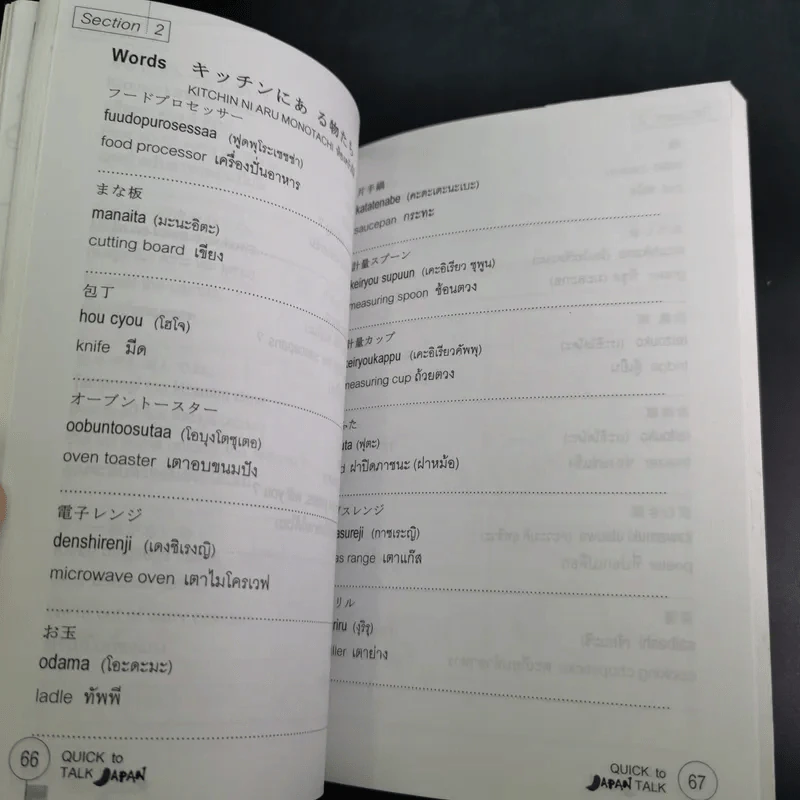 Section 2
Words キッチンにある物たち
KITCHIN NI ARU MONOTACHI
フードプロセッサー
fuudopurosessaa (ฟูดพุโระเซซซ่า)
food processor เครื่องปั่นอาหาร
まな板
manaita (มะนะอิตะ)
cutting board เขียง
包丁
hou cyou (โฮโจ)
knife มีด
オーブントースター
oobuntoosutaa (โอบุงโตซุเตอ)
oven toaster เตาอบขนมปัง
電子レンジ
denshirenji (เดงชิเรงญิ)
microwave oven เตาไมโครเวฟ
お玉
odama (โอะดะมะ)
ladle ทัพพี
66 QUICK to
TALK JAPAN
片手鍋
katatenabe (คะตะเตะนะเบะ)
saucepan กระทะ
計量スプーン
keiryou supuun (เคะอิเรียว ซุพูน)
measuring spoon ช้อนตวง
計量カップ
keiryoukappu (เคะอิเรียวคัพพุ)
measuring cup ถ้วยตวง
ふた
uta (ฟุตะ)
d ฝาปิดภาชนะ (ฝาหม้อ)
スレンジ
asureji (กาซเระญิ)
as range เตาแก๊ส
リル
riru (งุริรุ)
ller เตาย่าง
QUICK to
JAPAN TALK 67